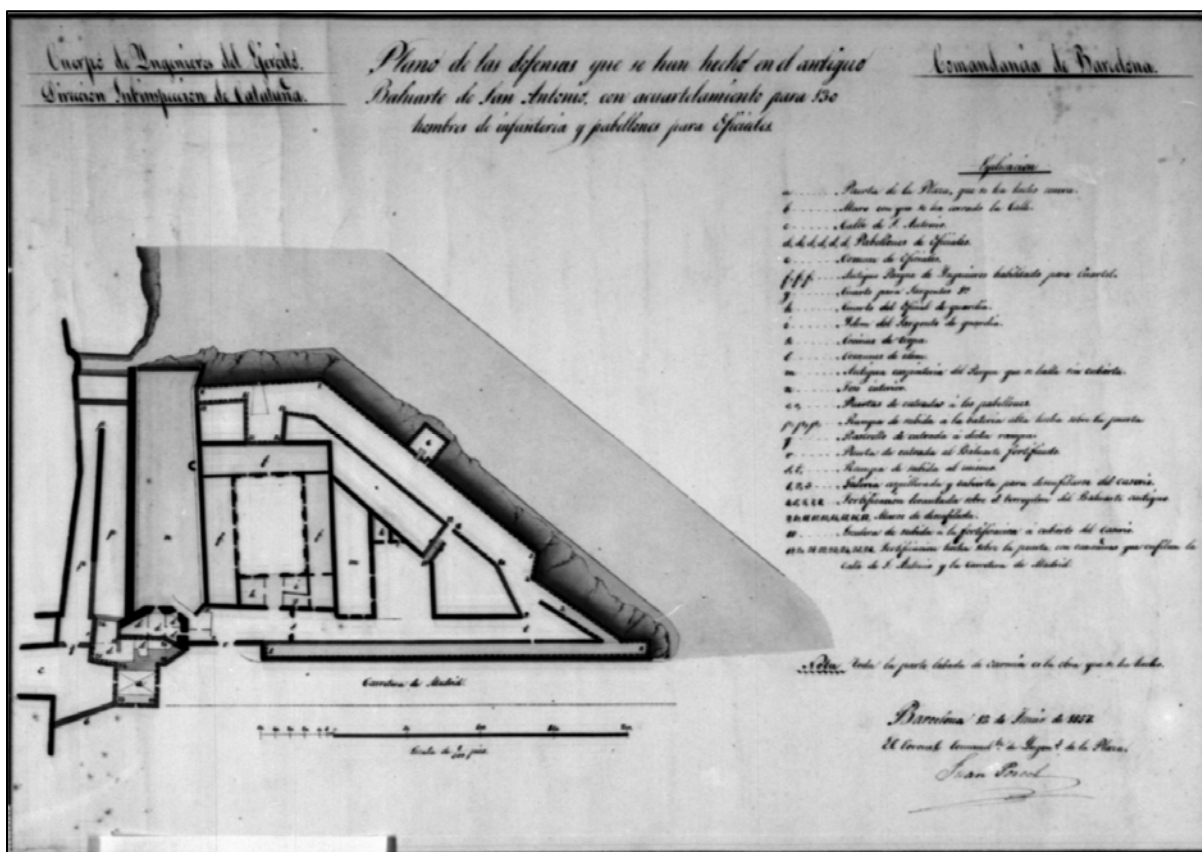 Cuerpo de Yngenieros del Ejercito.
Direccion Subinspeccion de Cataluña.
Plano de las defensas que se han hecho en el antiguo
Baluarte de San Antonio, con acuartelamiento para 130
hombres de infanteria y pabellones para Oficiales.
Comandancia de Barcelona.
Esplicacion
a Puerta de la Plaza, que se ha hecho
b Muro con que se ha cerrado la Calle.
c Calle de S. Antonio.
d, d, d, d, d, d, Pabellones de Oficiales.
e Comun de Oficiales.
f, f, f, Antiguo Parque de Yngenieros habilitado para Cuartel.
g Cuarto para Sargentos
h Cuarto del Oficial de guardia.
i Idem del Sargento de guardia.
k Cocinas de tropa
l Comunes de idem
m Antigua carpinteria del Parque que se halla sin cubierta.
n Foso interior.
Puertas de entradas á los pabellones
p, p, p, Rampa de subida á la bateria alta hecha sobre la puerta
q de entrada á dicha rampa.
r Puerta de entrada al Baluarte fortificado
Rampa de subida al mismo
Galeria aspillerada y cubierta para desenfilarse del caserio
Fortificacion levantada sobre el terraplen del Baluarte antiguo
Muros de desenfilada.
de subida á la fortificacion á cubierto del caserio
Fortificacion hecha sobre la puerta con cañoneras que enfilan la
Calle de S. Antonio y la Carretera de Madrid.
Nota Toda la parte labada de carmin es la obra que se ha hecho.
Carretera de Madrid.
Escala de pies
Barcelona 12 de de 1857
El Coronel Comand.te de Yngen.s de la Plaza.
Juan Porcel